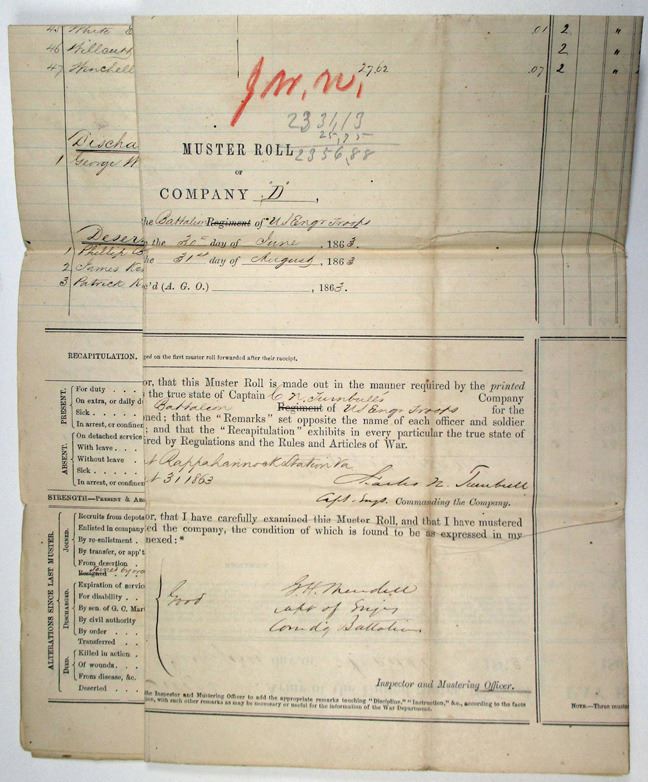 45 White
46
47 Winchell
Discha
1 George W
Deser
1 Phillip
2 James Ke
3 Patrick K
.01 2 "
2 "
27.62 .07 2 "
J.W.N.
2331,13
25,75
2356,88
MUSTER ROLL
OF
COMPANY "D",
the Battalion Regiment of US Engr Troops
the 30th day of June, 1863
the 31st day of August, 1863
c'd (A. G. O.) , 1863.
RECAPITULATION.
ged on the first muster roll forwarded after their receipt.
PRESENT.
For duty . . .
On extra, or daily d
Sick . . . .
In arrest, or confinem
ABSENT.
On detached service
With leave . . .
Without leave . .
Sick . . . .
In arrest, or confinem
STRENGTH—PRESENT & AB
ALTERATIONS SINCE LAST MUSTER.
JOINED.
Recruits from depots
Enlisted in company
By re-enlistment .
By transfer, or app't
From desertion .
Resigned
DISCHARGED.
Expiration of service
For disability . .
By sen. of G. C. Mar
By civil authority
By order . . .
Transferred . . .
DIED.
Killed in action .
Of wounds . . .
From disease, &c.
Deserted . . .
or, that this Muster Roll is made out in the manner required by the printed
the true state of Captain C. N. Turnbull's Company
Battalion Regiment of US Engr Troops for the
ned; that the "Remarks" set opposite the name of each officer and soldier
; and that the "Recapitulation" exhibits in every particular the true state of
ired by Regulations and the Rules and Articles of War.
at Rappahannock Station Va
t 31 1863
Charles N. Turnbull
Capt. Engs. Commanding the Company.
or, that I have carefully examined this Muster Roll, and that I have mustered
ed the company, the condition of which is found to be as expressed in my
nexed:*
Good
G. H. Mendell
Capt of Engrs
Comdg Battalion
Inspector and Mustering Officer.
the Inspector and Mustering Officer to add the appropriate remarks touching "Discipline," "Instruction," &c., according to the facts
tion, with such other remarks as may be necessary or useful for the information of the War Department.
NOTE.—Three muster